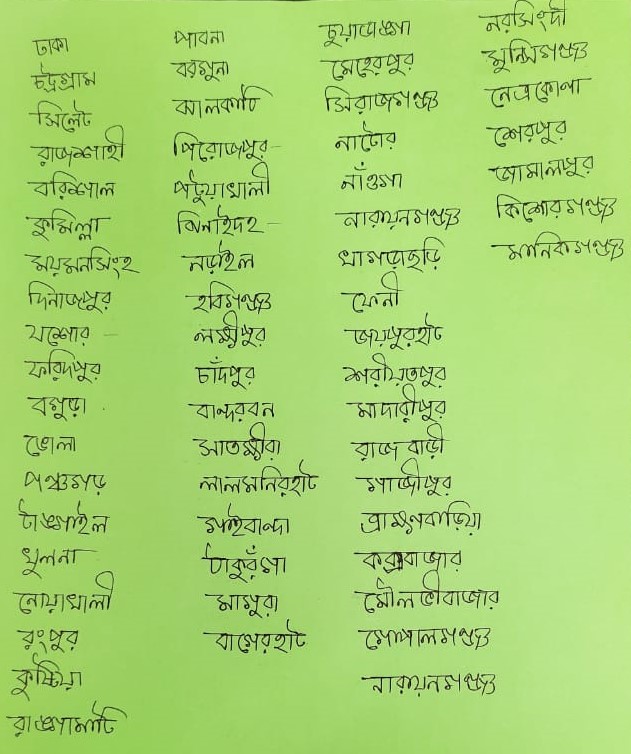 ঢাকা
চট্রগ্রাম
সিলেট
রাজশাহী
বরিশাল
কুমিল্লা
ময়মনসিংহ
দিনাজপুর
যশোর
ফরিদপুর
বগুড়া
ভোলা
পঞ্চগড়
টাঙ্গাইল
খুলনা
নোয়াখালী
রংপুর
কুষ্টিয়া
রাঙ্গামাটি
পাবনা
বরগুনা
ঝালকাঠি
পিরোজপুর
পটুয়াখালী
ঝিনাইদহ
নড়াইল
হবিগঞ্জ
লক্ষ্মীপুর
চাঁদপুর
বান্দরবন
সাতক্ষীরা
লালমনিরহাট
গাইবান্দা
ঠাকুরঁগা
মাগুরা
বাগেরহাট
চুয়াডাঙ্গা
মেহেরপুর
সিরাজগঞ্জ
নাটোর
নাঁওগা
নারায়নগঞ্জ
খাগড়াছড়ি
ফেনী
জয়পুরহাট
শরীয়তপুর
মাদারীপুর
রাজবাড়ী
গাজীপুর
ব্রাহ্মণবাড়িয়া
কক্সবাজার
মৌলভীবাজার
গোপালগঞ্জ
নারায়নগঞ্জ
নরসিংদী
মুন্সিগঞ্জ
নেত্রকোণা
শেরপুর
জামালপুর
কিশোরগঞ্জ
মানিকগঞ্জ